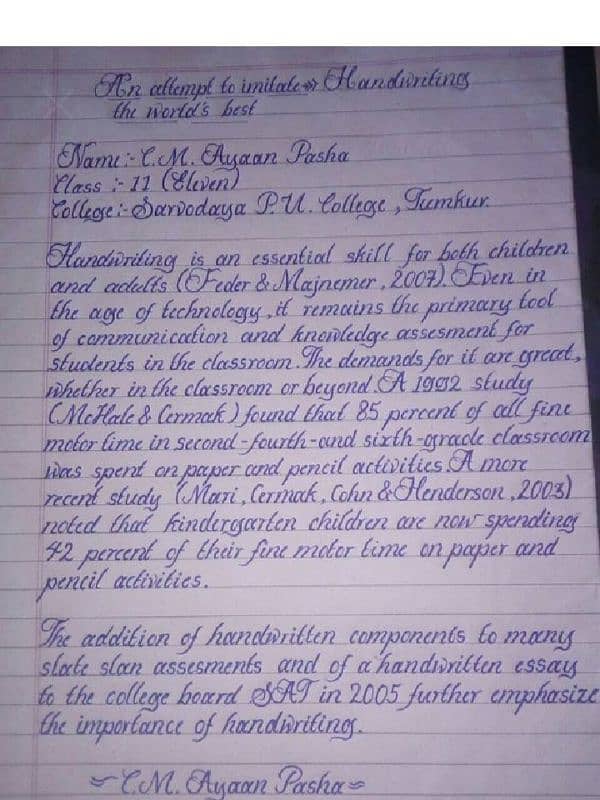 An attempt to imitate Handwriting
the world's best
Name:- C.M. Ayaan Pasha
Class :- 11 (Eleven)
College:- Sarvodaya P.U. College, Tumkur.
Handwriting is an essential skill for both children
and adults (Feder & Majnemer, 2007). Even in
the age of technology, it remains the primary tool
of communication and knowledge assesment for
students in the classroom. The demands for it are great,
whether in the classroom or beyond. A 1992 study
(McHale & Cermak) found that 85 percent of all fine
motor time in second-fourth-and sixth-grade classroom
was spent on paper and pencil activities. A more
recent study (Mari, Cermak, Cohn & Henderson, 2003)
noted that kindergarten children are now spending
42 percent of their fine motor time on paper and
pencil activities.
The addition of handwritten components to many
state stan assesments and of a handwritten essay
to the college board SAT in 2005 further emphasize
the importance of handwriting.
~C.M. Ayaan Pasha~